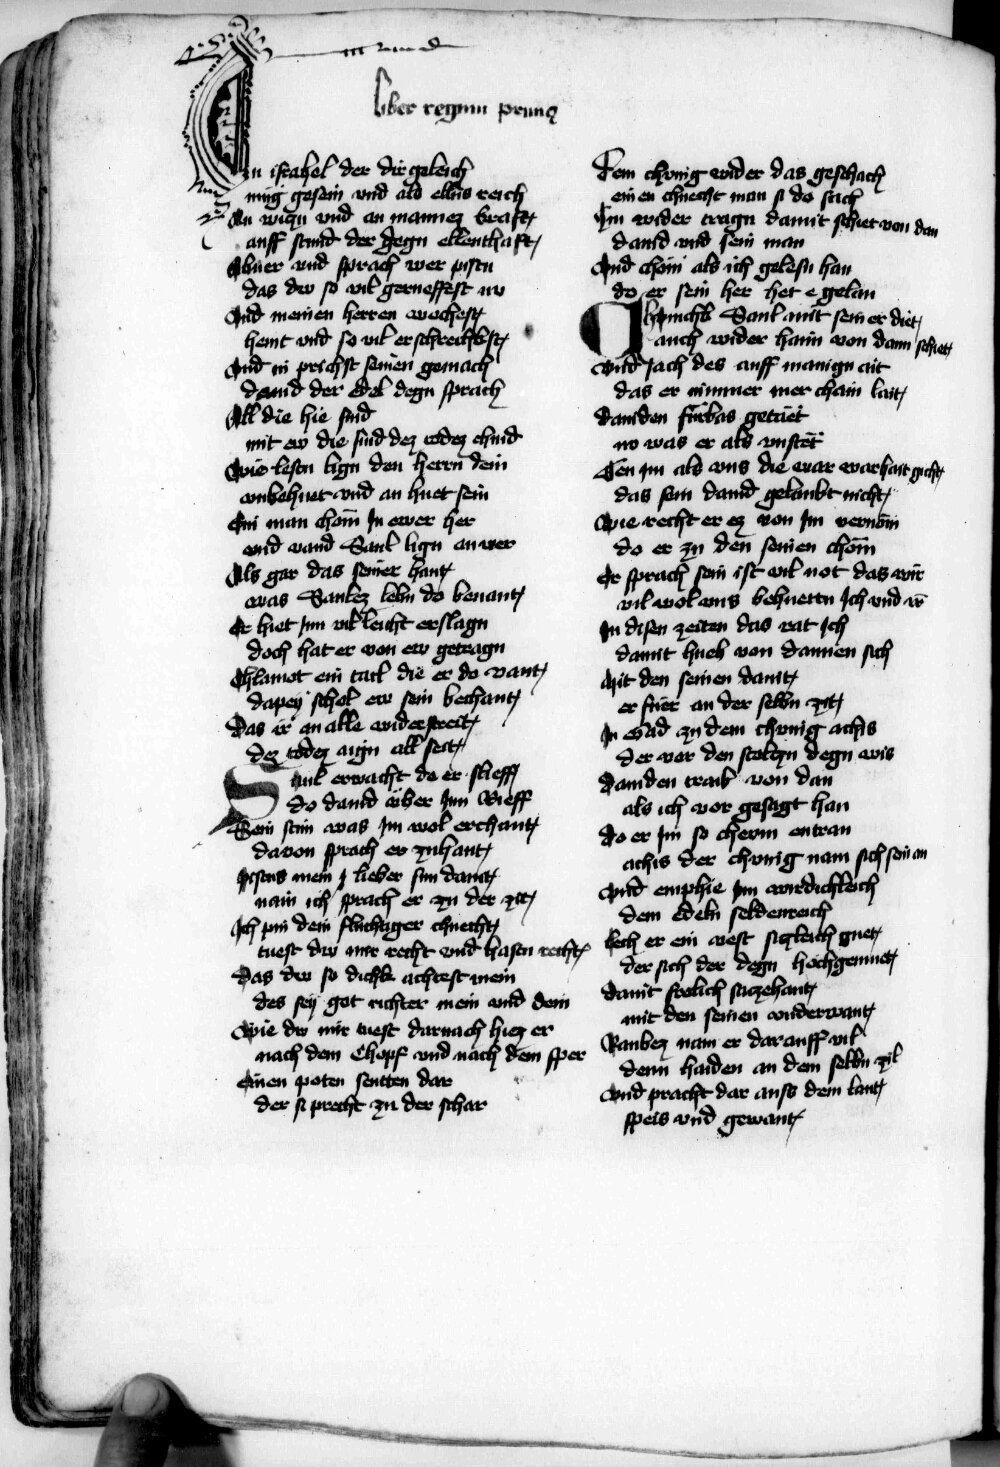 liber regum prim9
In israhel der dir geleich
mug gesein vnd als ellns reich
An wiczn vnd an mannez kraft
auff stund der degn ellenthaft
Abner vnd sprach wer pistu
das dw so vil geruessest nv
Vnd meinen herren wechest
hewt vnd so vil erschrekhest
Vnd in prichst seinen gemach
dauid der edel degn sprach
All die hie sind
mit ew die sind dez todez chind
Wie lestu lign den herrn dein
vnbehuet vnd an huet sein
Ein man chom In ewer her
vnd vand Saul lign an wer
Als gar das seiner hant
was Saulez lebn do benant
Er hiet Inn villeicht erslagn
doch hat er von ew getragn
Chlainot ein tail die er do vant
dapey schol ew sein bechant
Das ir an alle widerstreit
dez todez aign all seit
Saul erwacht do er slieff
do dauid vber Inn Rieff
Sein stim was Im wol erchant
dauon sprach er zuhant
Pistus mein lieber sun dauit
nain ich sprach er zu der zit
Ich pin dein fluchtiger chnecht
tuest dw mir recht vnd hastu recht
Das dw so dickh achtest mein
des sey got richter mein vnd dein
Wie dw mir tuest darnach hiez er
nach dem Chopf vnd nach dem sper
Einen poten sentten dar
der si precht zu der schar
Dem chunig wider das geschach
einen chnecht man si do sach
Im wider tragn damit schiet von dan
dauid vnd sein man
Vnd chom als ich gelesn han
do er sein her het e gelan
Chunickh Saul mit seiner diet
auch wider haim von dann schiet
Vnd Jach des auff manign ait
das er nimmer mer chain lait
Dauiden furbas getriet
no was er als vnstet
Den im als vns die war warhait gicht
das sein dauid gelaubt nicht
Wie recht er ez von Im vernom
do er zu den seinen chom
Er sprach sein ist vil not das wir
vil wol vns behuetten Ich vnd ir
In disen zeiten das rat Ich
damit hueb von dannen sich
Mit den seinen dauit
er fuer an der selbn zit
In Gad zu dem chunig achis
der vor den stolczn degn wis
Dauiden traib von dan
als ich vor gesagt han
Do er Im so chawm entran
achis der chunig nam sich sein an
Vnd emphie Im wirdichleich
dem edeln seldenreich
Lech er ein vest sicherleich guet
der sich der degn hochgemuet
Damit frolich saczehant
mit den seinen vnderwant
Raubez nam er darauff vil
denn haiden an dem selbn zil
Vnd pracht dar auss dem lant
speis vnd gewant